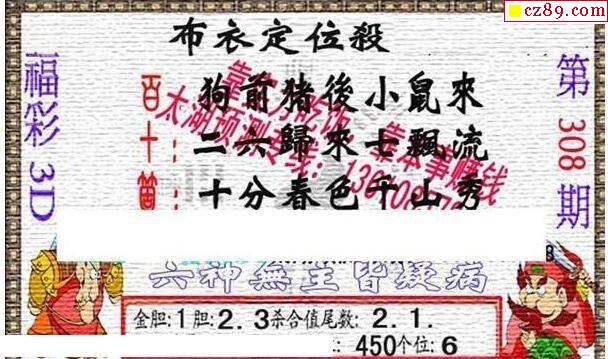 cz89.com
布衣定位殺
福彩3D
第308期
百：狗前猪後小鼠來
十：二六歸來七飄流
個：十分春色千山秀
六神無主皆疑病
金胆:1胆:2.3杀合值尾数:2.1.
:450个位:6